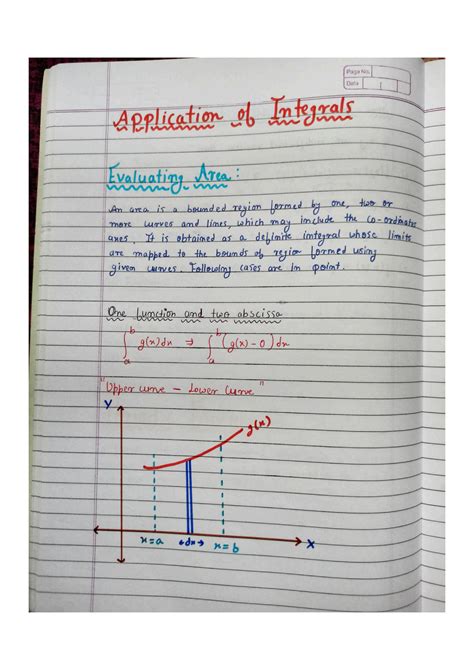 Page No.
Date
Application of Integrals
Evaluating Area :
An area is a bounded region formed by one, two or
more curves and lines, which may include the co-ordinate
axes. It is obtained as a definite integral whose limits
are mapped to the bounds of region formed using
given curves. Following cases are in point.
One function and two abscissa
∫_a^b g(x)dx ⇒ ∫_a^b (g(x) - 0) dx
"Upper curve - Lower Curve"
Y
g(x)
x=a dx x=b X